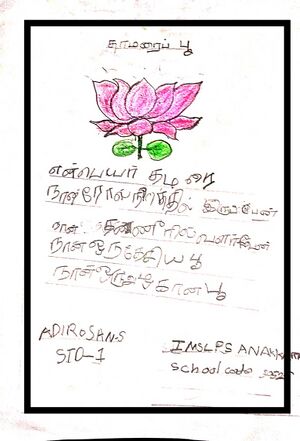 தாமரைப் பூ
என்பெயர் தமரை
நான் ரோஸ் நிறத்தில் இருப்பேன்
நான் தண்ணீரில் வளர்வேன்
நான் ஒரு தேசிய பூ
நான் ஒரு அழகான பூ
ADIROSAN.S
STD-1
IMSLPS
School code